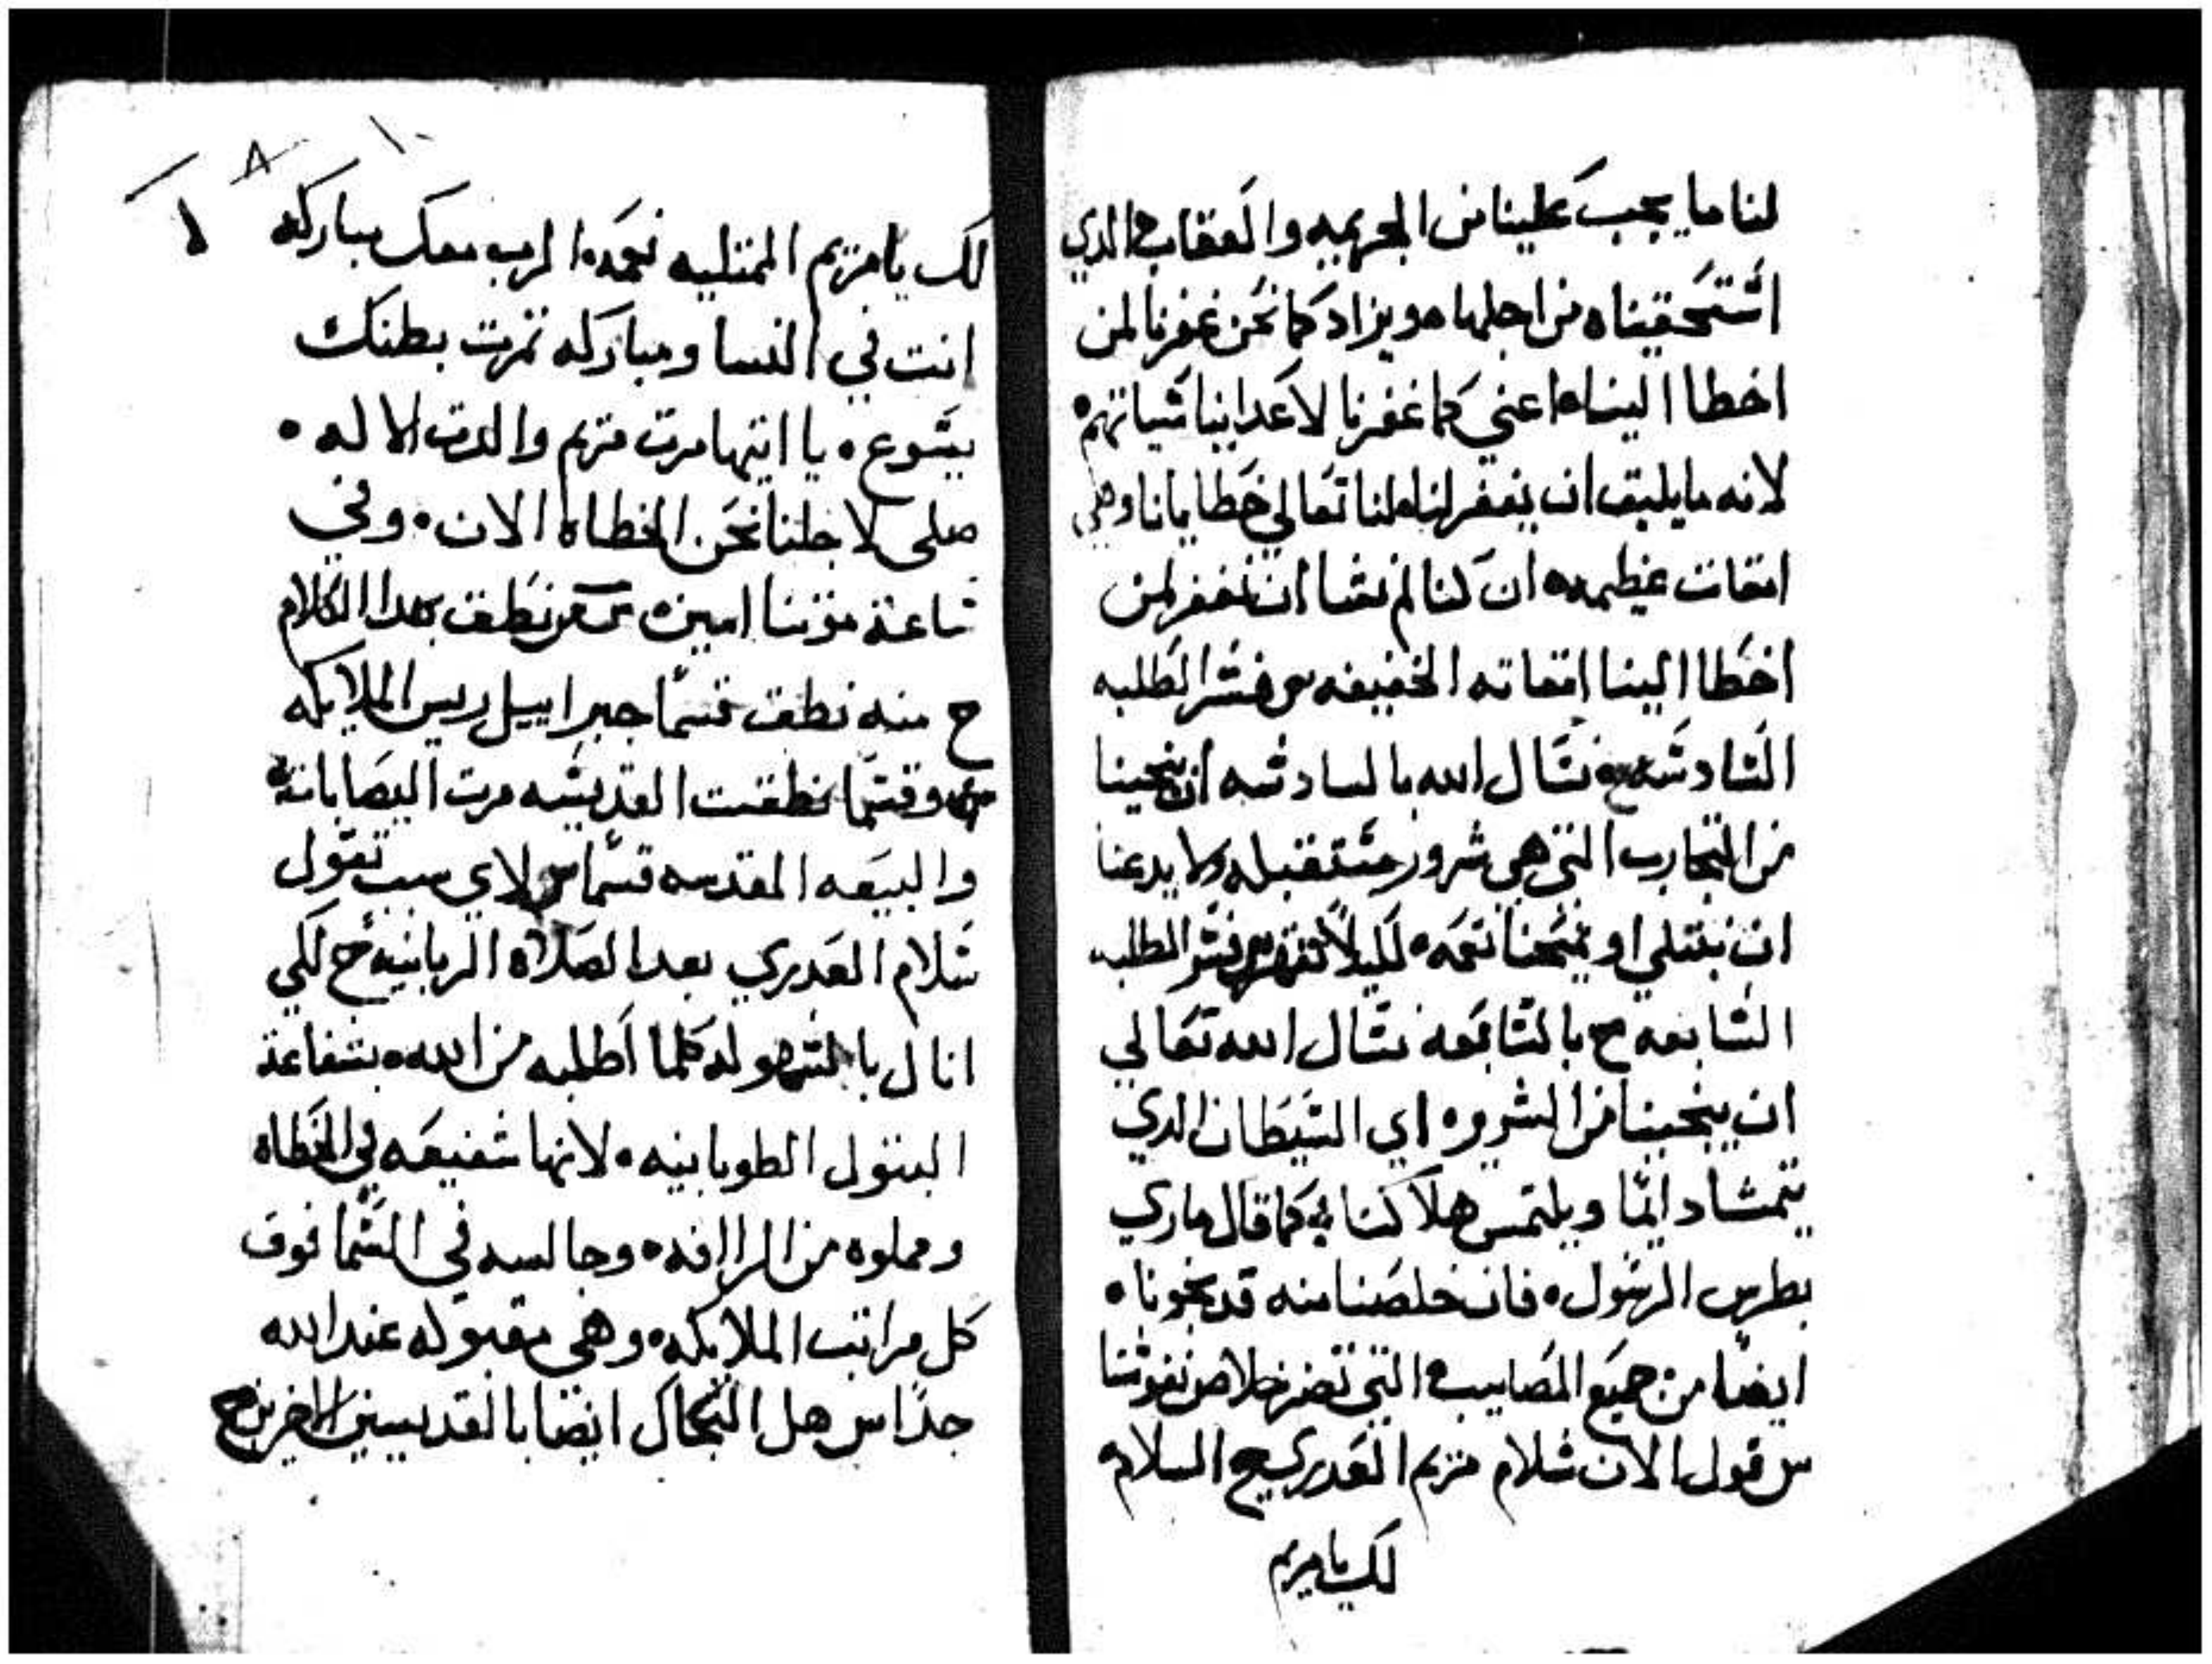 لنا ما يجب علينا من الجريمه والعقاب الدي
اشتحقيناه من اجلها ويزاد كما نحن غفرنا لمن
اخطا الينا اعني كما غفرنا لاعداينا شياتهم
لانه ما يليق ان يغفر لنا تعالي خطايانا وهي
اتقات عظيمه ان كنا لم نشا ان نغفر لمن
اخطا الينا اتقاته الخفيفه س فشر الطلبه
الشادشه ح نشال الله بالسادشه ان ينجينا
من التجارب التي هي شرور مشتقبله ولا يدعنا
ان نبتلي او يمنحنا نعمه لكيلا نقهر س فشر الطلبه
الشابعه ح بالشابعه نشال الله تعالي
ان ينجينا من الشرور اي الشيطان الدي
يتمشا دايما ويلتمس هلاكنا كما قال ماري
بطرس الرشول فان خلصنا منه قد نجونا
ايضا من جميع المصايب التي تضر خلاص نفوشنا
س قول الان شلام مريم العدري ح السلام
لك يا مريم
١٠
٨
لك يا مريم الممتليه نعمه الرب معك مباركه
انت في النسا ومباركه تمرت بطنك
يشوع يا ايتها مرت مريم والدت الاله
صلي لاجلنا نحن الخطاه الان وفي
شاعة موتنا امين س من نطق بهدا الكلام
ح منه نطق قسما جبراييل ريس الملايكه
ومنه وقشما نطقت القديشه مرت اليصابات
والبيعه المقدسه قسما س لاي سبب تقول
شلام العدري بعد الصلاه الربانيه ح لكي
انال بالشهوله كلما اطلبه من الله بشفاعة
البتول الطوبانيه لانها شفيعه في الخطاه
ومملوه من الراافه وجالسه في الشما فوق
كل مراتب الملايكه وهي مقبوله عند الله
جدا س هل التجال ايضا بالقديسين الاخرين ح